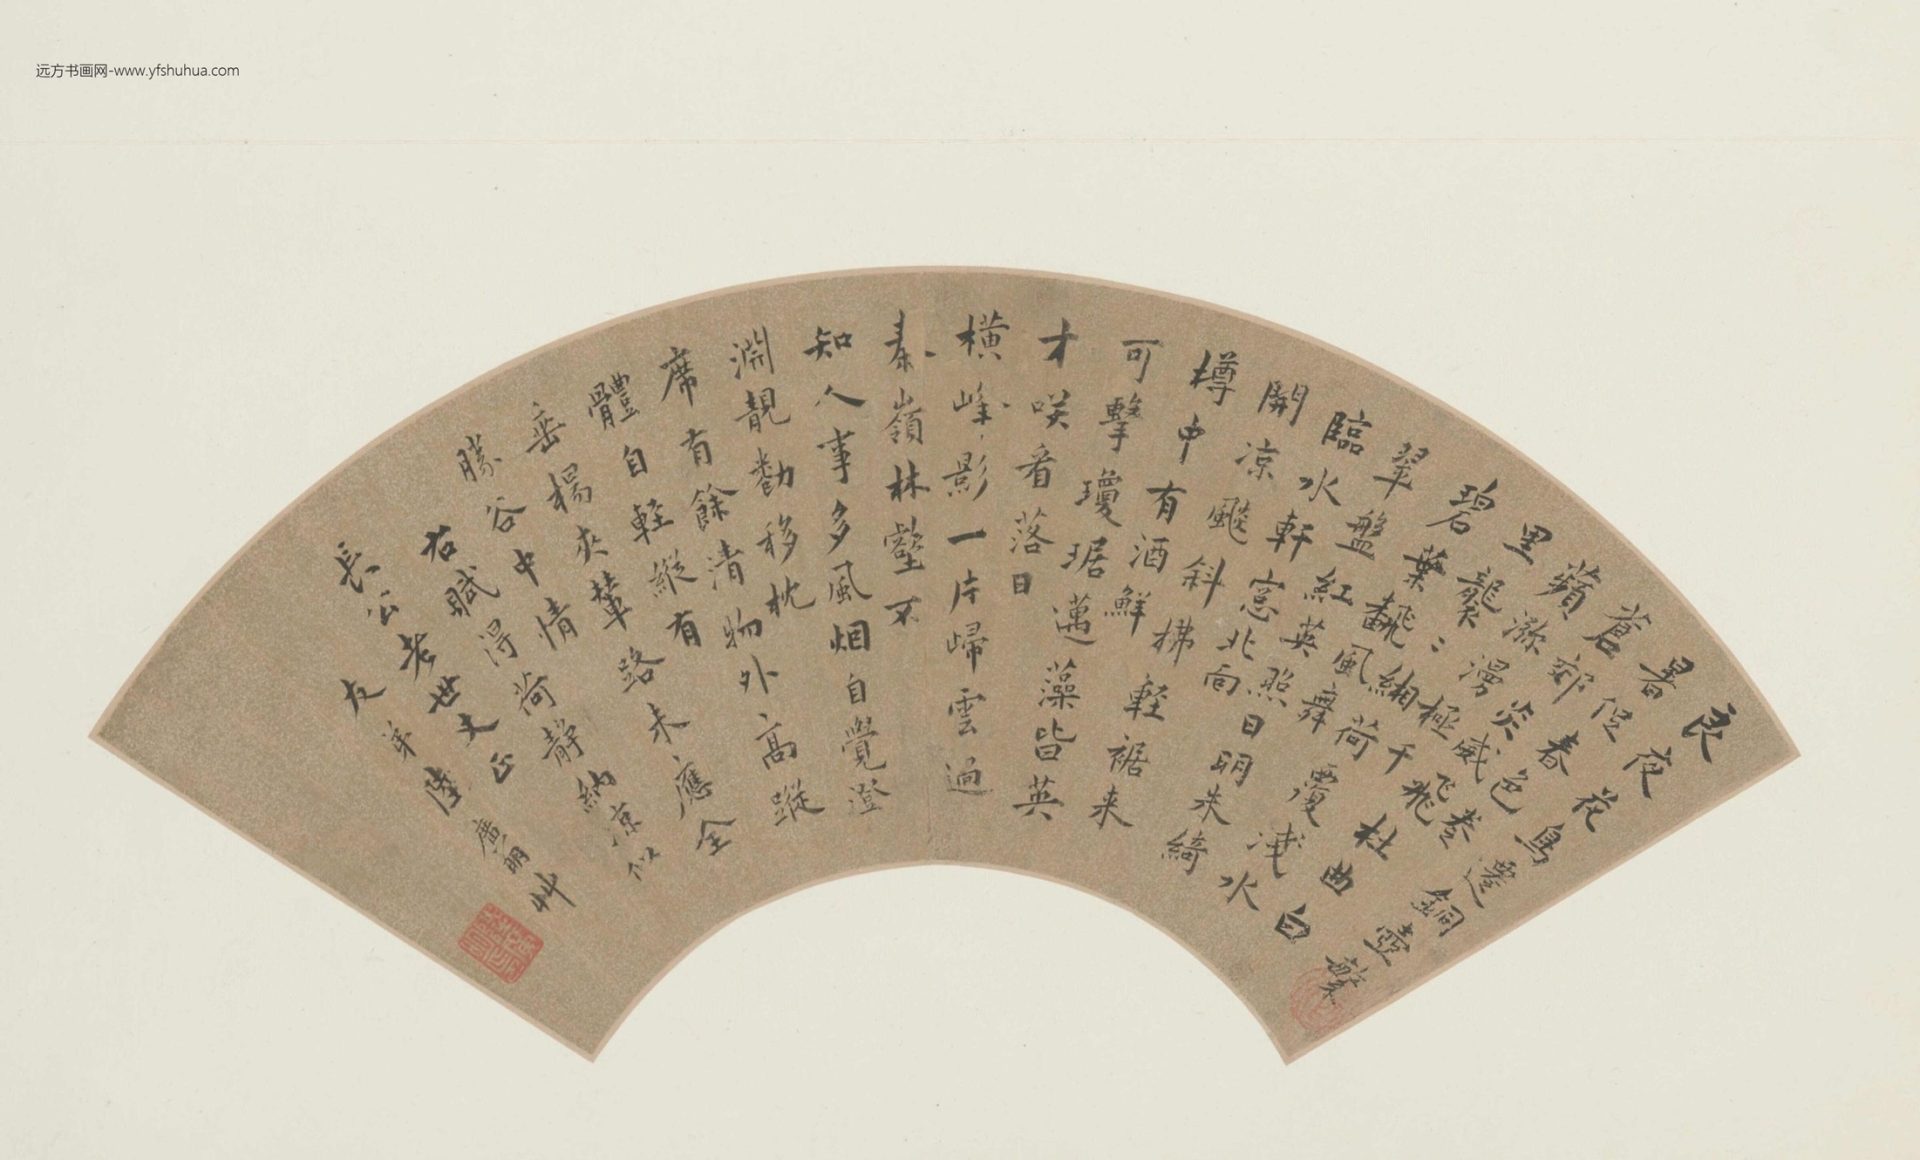 良夜花鳥遷銅壺
暑促春色
蒼郊炎威飛杜曲白
蘋渺漫極千
里
碧葉翻緗荷覆淺水
翠盤紅風舞
臨水軒窓北向
開凉颸斜拂輕裾来
樽中有酒鮮
可擊瓊琚邁藻皆英
才咲看落日
橫峰影一片歸雲過
秦嶺林壑不
知人事多風烟自覺澄
淵靚勸移枕
席有餘清物外高蹤
體自輕縱有
垂楊夾輦路未應全
勝谷中情
右賦得荷靜納凉似
長公老世丈正
友弟陸廣明艸
远方书画网-www.yfshuhua.com